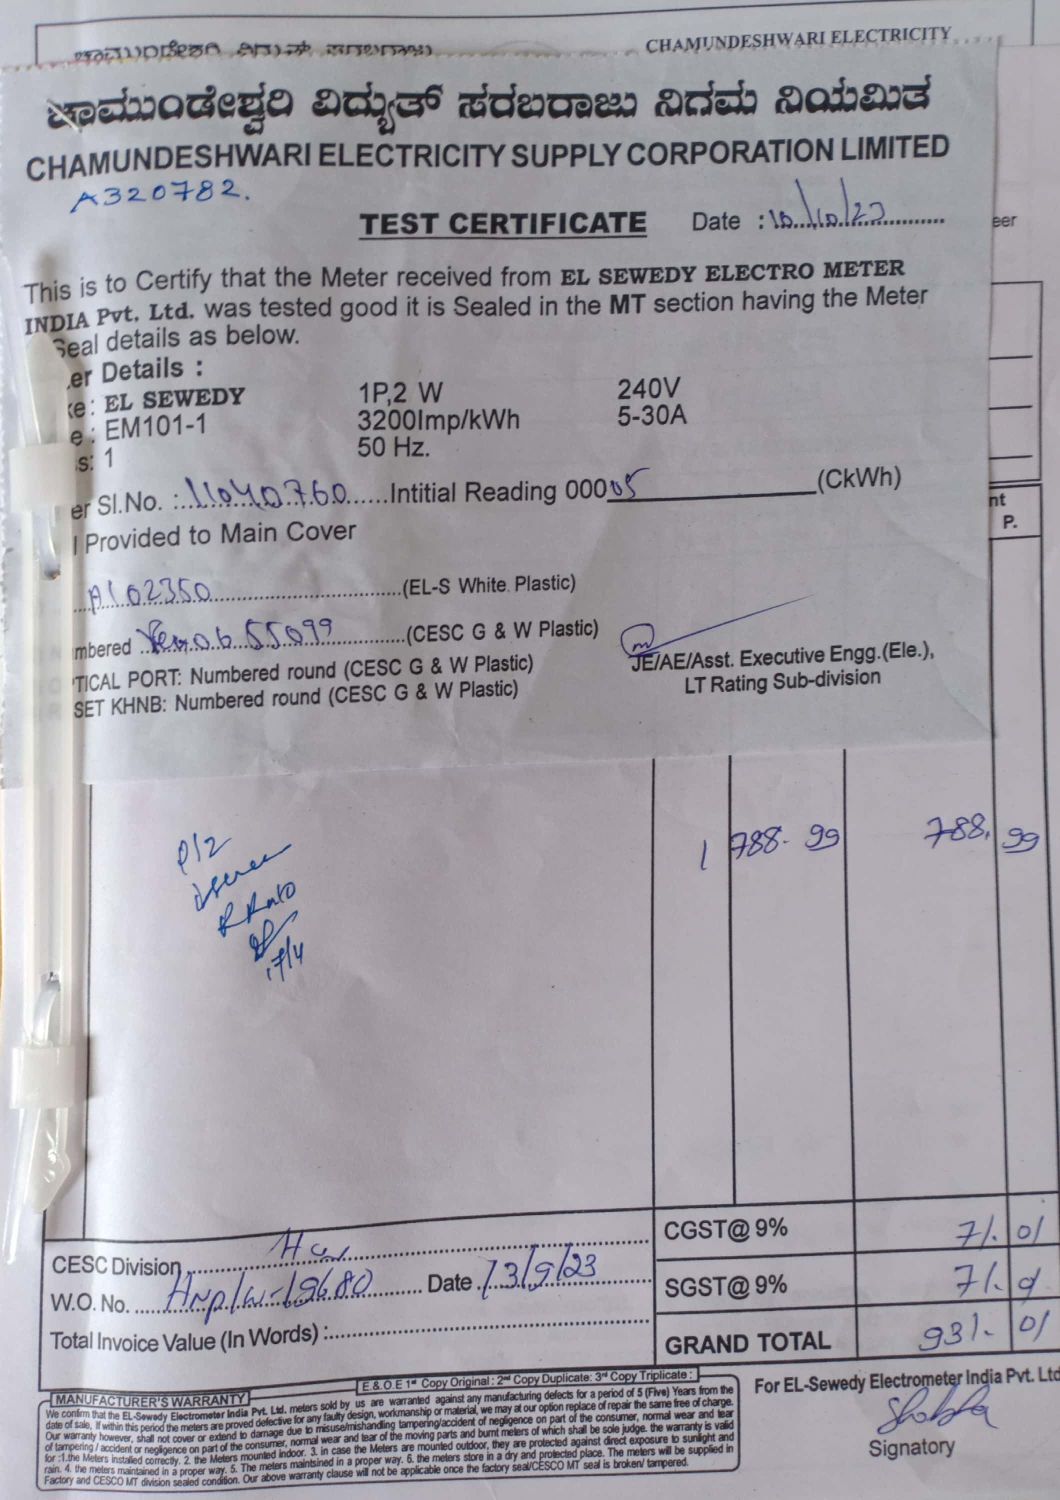 CHAMUNDESHWARI ELECTRICITY
ಚಾಮುಂಡೇಶ್ವರಿ ವಿದ್ಯುತ್ ಸರಬರಾಜು ನಿಗಮ ನಿಯಮಿತ
CHAMUNDESHWARI ELECTRICITY SUPPLY CORPORATION LIMITED
A320782.
TEST CERTIFICATE Date :
eer
This is to Certify that the Meter received from EL SEWEDY ELECTRO METER
INDIA Pvt. Ltd. was tested good it is Sealed in the MT section having the Meter
Seal details as below.
er Details :
ke: EL SEWEDY 1P,2 W 240V
e : EM101-1 3200Imp/kWh 5-30A
s: 1 50 Hz.
er Sl.No. : 11040760 Intitial Reading 00005 (CkWh)
l Provided to Main Cover
nt
P.
A102350 (EL-S White Plastic)
mbered (CESC G & W Plastic)
TICAL PORT: Numbered round (CESC G & W Plastic)
SET KHNB: Numbered round (CESC G & W Plastic)
JE/AE/Asst. Executive Engg.(Ele.),
LT Rating Sub-division
1 788. 99 788. 99
17/4
CGST@ 9% 71. 01
CESC Division
SGST@ 9% 71.
W.O. No. Date 13/9/23
Total Invoice Value (In Words) :
GRAND TOTAL 931. 01
E.& O.E 1st Copy Original : 2nd Copy Duplicate: 3rd Copy Triplicate :
For EL-Sewedy Electrometer India Pvt. Ltd
MANUFACTURER'S WARRANTY
We confirm that the EL-Sewedy Electrometer India Pvt. Ltd. meters sold by us are warranted against any manufacturing defects for a period of 5 (Five) Years from the
date of sale, If within this period the meters are proved defective for any faulty design, workmanship or material, we may at our option replace of repair the same free of charge.
Our warranty however, shall not cover or extend to damage due to misuse/mishandling tampering/accident of negligence on part of the consumer, normal wear and tear
of tampering / accident or negligence on part of the consumer, normal wear and tear of the moving parts and burnt meters of which shall be sole judge. the warranty is valid
for :1.the Meters installed correctly. 2. the Meters mounted indoor. 3. in case the Meters are mounted outdoor, they are protected against direct exposure to sunlight and
rain. 4. the meters maintained in a proper way. 5. The meters maintsined in a proper way. 6. the meters store in a dry and protected place. The meters will be supplied in
Factory and CESCO MT division sealed condition. Our above warranty clause will not be applicable once the factory seal/CESCO MT seal is broken/ tampered.
Signatory